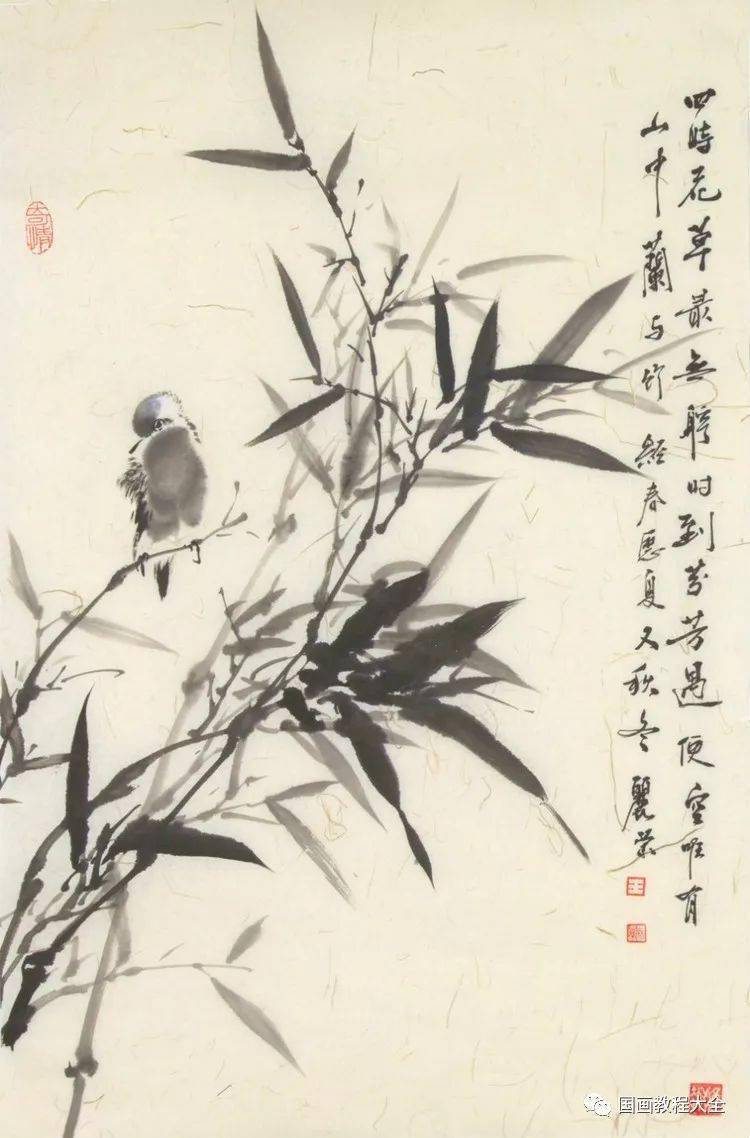 四時花草最無窮时到芬芳過便空唯有
山中蘭与竹經春歷夏又秋冬 麗
王
国画教程大全